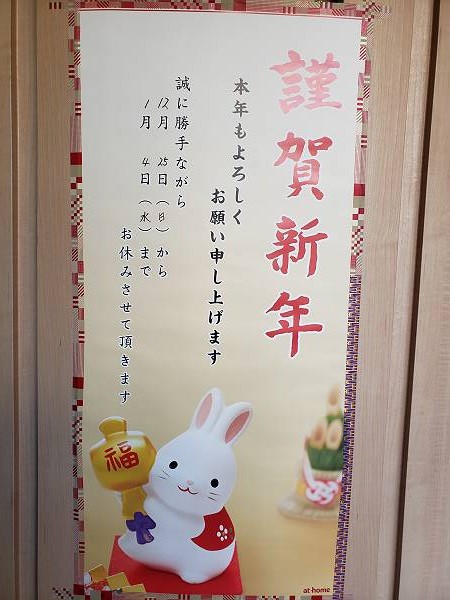 謹賀新年
本年もよろしく
お願い申し上げます
誠に勝手ながら
12月 25日(日)から
1月 4日(水)まで
お休みさせて頂きます
福
at-home